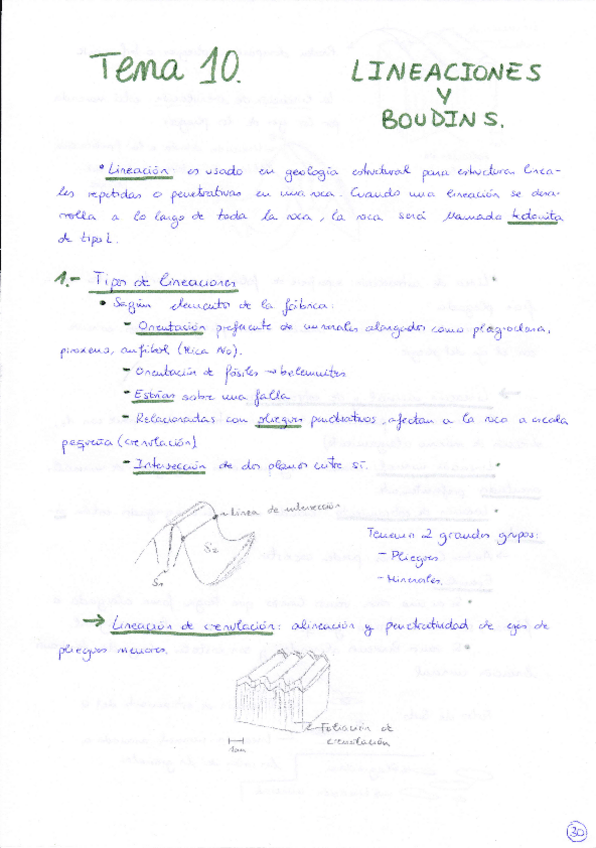 Tema 10.
LINEACIONES
Y
BOUDINS.
• Lineación es usado en geología estructural para estructuras linea-
les repetidas o penetrativas en una roca. Cuando una lineación se desa-
rrolla a lo largo de toda la roca, la roca será llamada tectonita
de tipo L.
1.- Tipos de lineaciones
• Según elementos de la fábrica:
- Orientación preferente de minerales alargados como plagioclasa,
piroxeno, anfíbol (Mica No).
- Orientación de fósiles → belemnites
- Estrías sobre una falla
- Relacionadas con pliegues penetrativos, afectan a la roca a escala
pequeña (crenulación)
- Intersección de dos planos entre sí.
línea de intersección
S2
S1
Tenemos 2 grandes grupos:
- Pliegues
- Minerales.
→ Lineación de crenulación: alineación y penetratividad de ejes de
pliegues menores.
Foliación de
crenulación
1cm
30